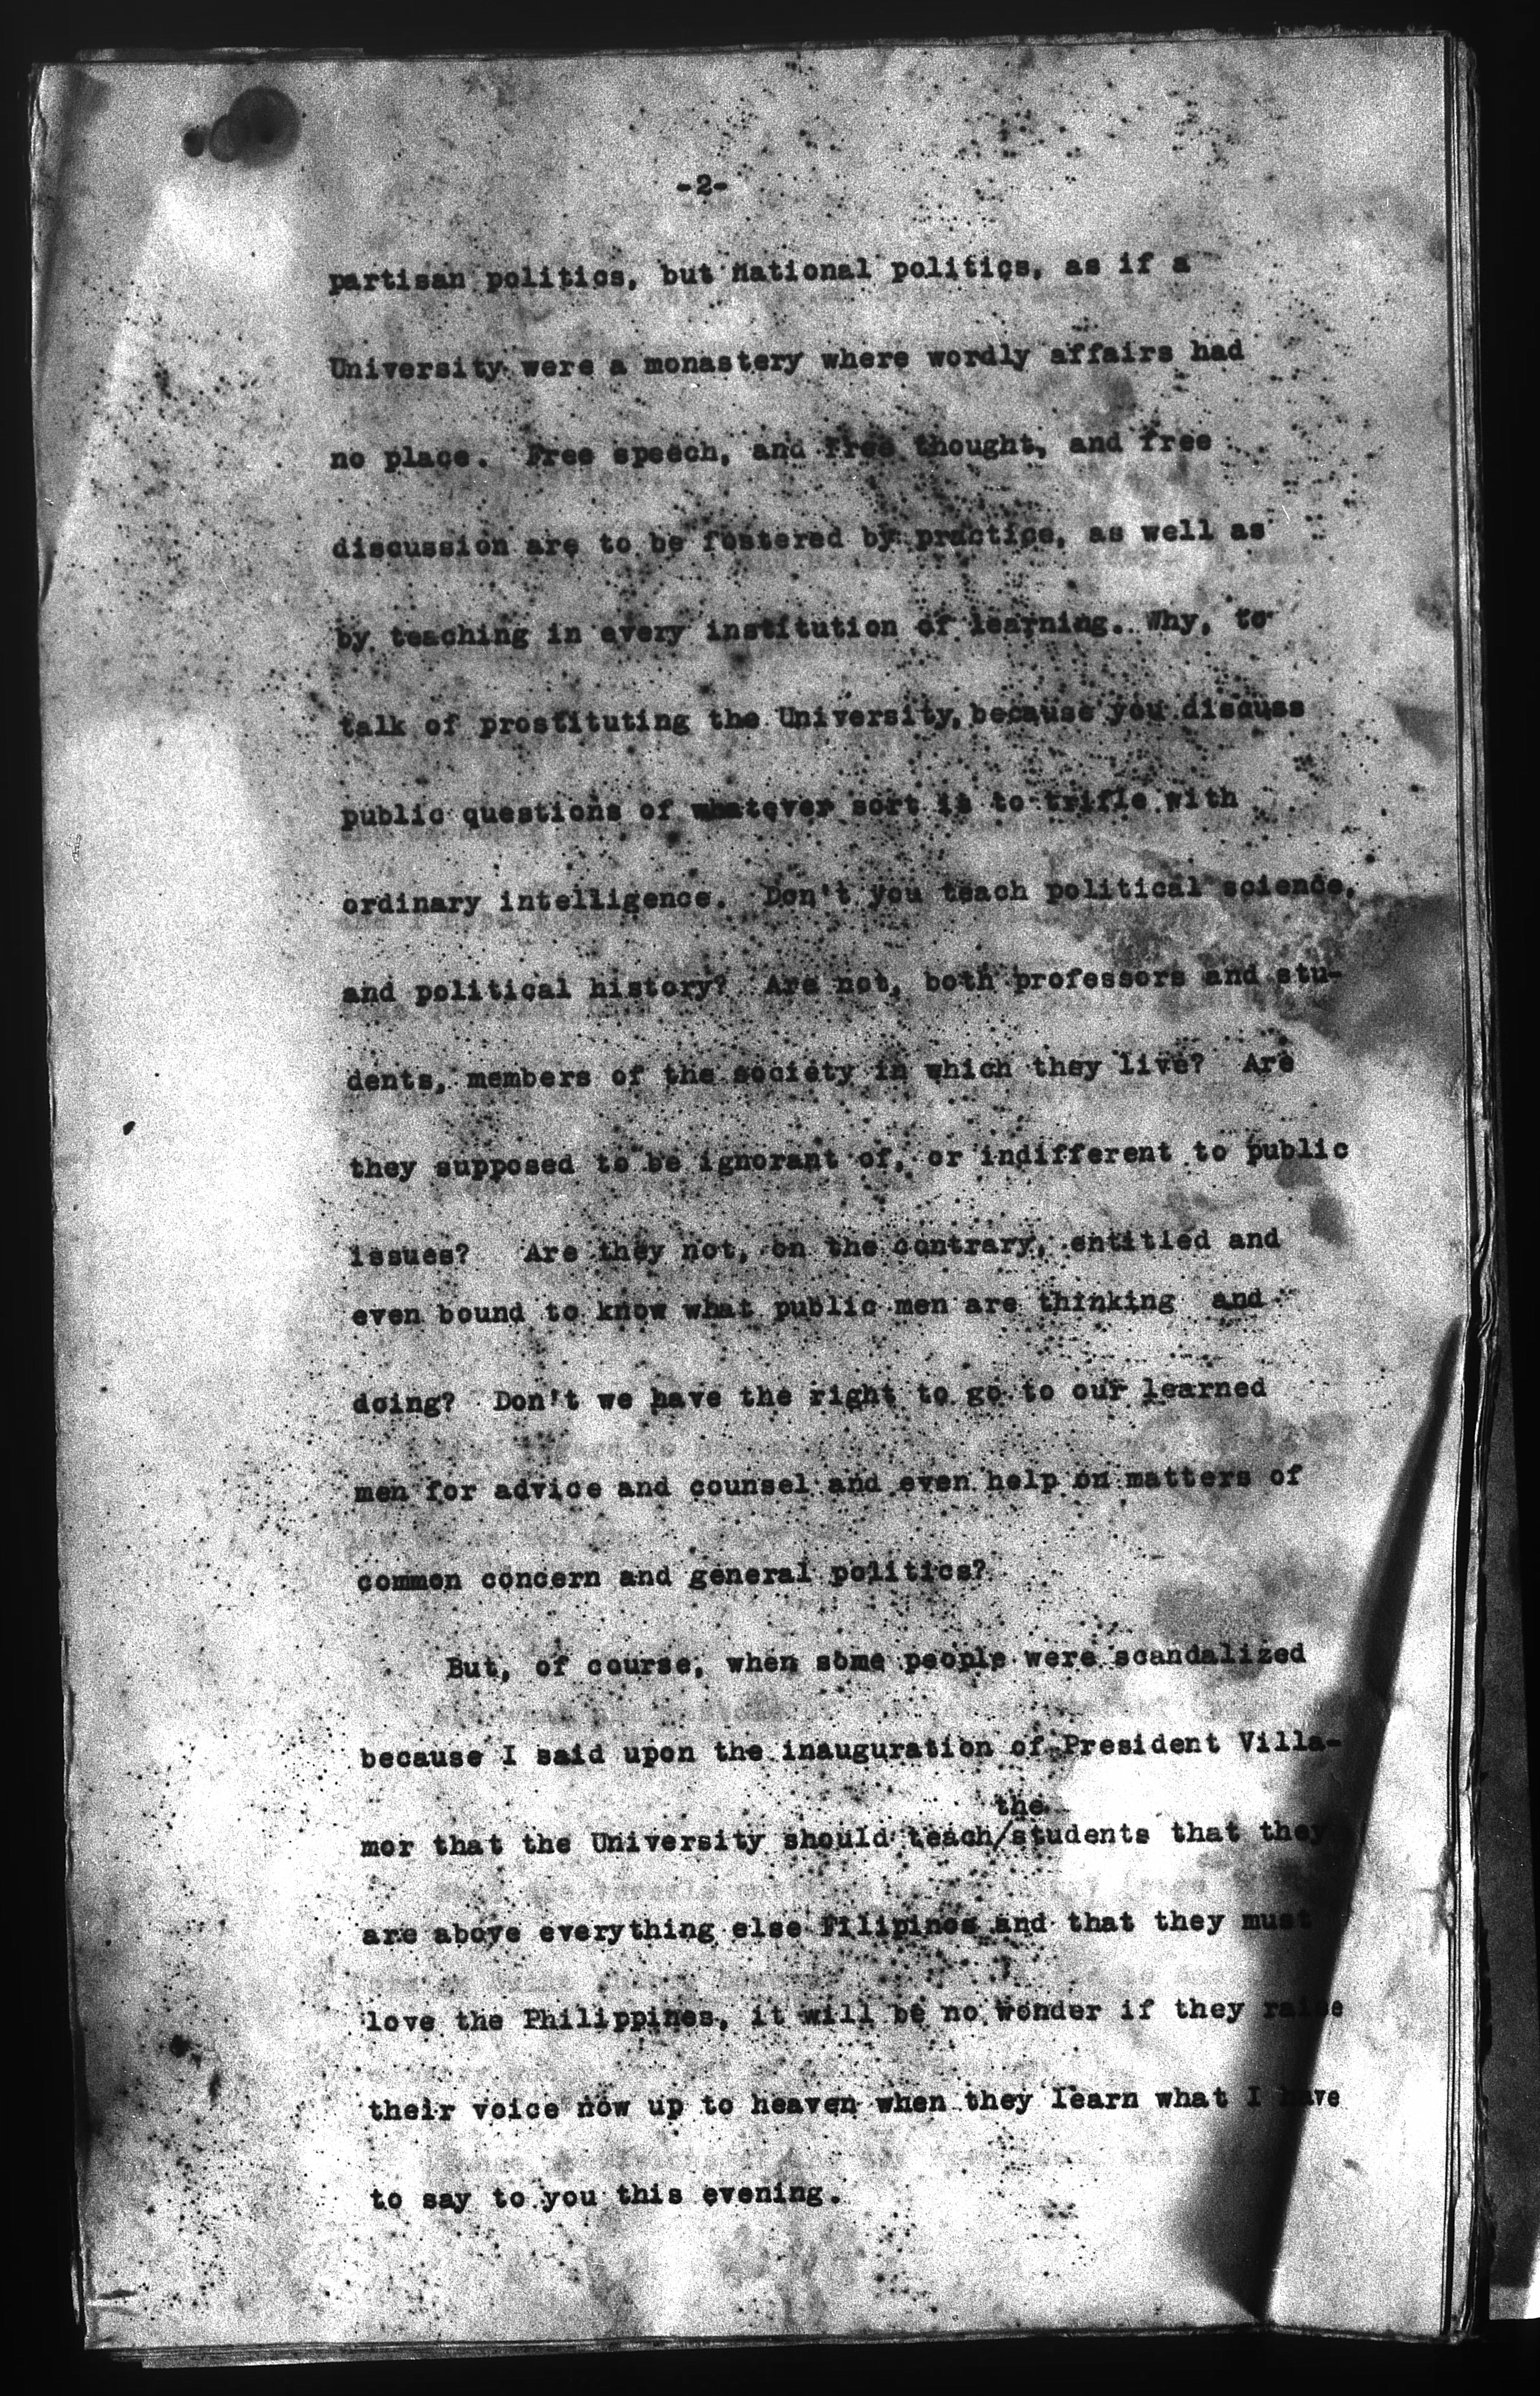 -2-
partisan politics, but national politics, as if a
University were a monastery where wordly affairs had
no place. Free speech, and free thought, and free
discussion are to be fostered by practice, as well as
by teaching in every institution of learning. Why, to
talk of prostituting the University, because you discuss
public questions of whatever sort is to trifle with
ordinary intelligence. Don't you teach political science,
and political history? Are not, both professors and stu-
dents, members of the society in which they live? Are
they supposed to be ignorant of, or indifferent to public
issues? Are they not, on the contrary, entitled and
even bound to know what public men are thinking and
doing? Don't we have the right to go to our learned
men for advice and counsel and even help on matters of
common concern and general politics?
But, of course, when some people were scandalized
because I said upon the inauguration of President Villa-
the
mor that the University should teach/students that they
are above everything else Filipinos and that they must
love the Philippines, it will be no wonder if they raise
their voice now up to heaven when they learn what I have
to say to you this evening.